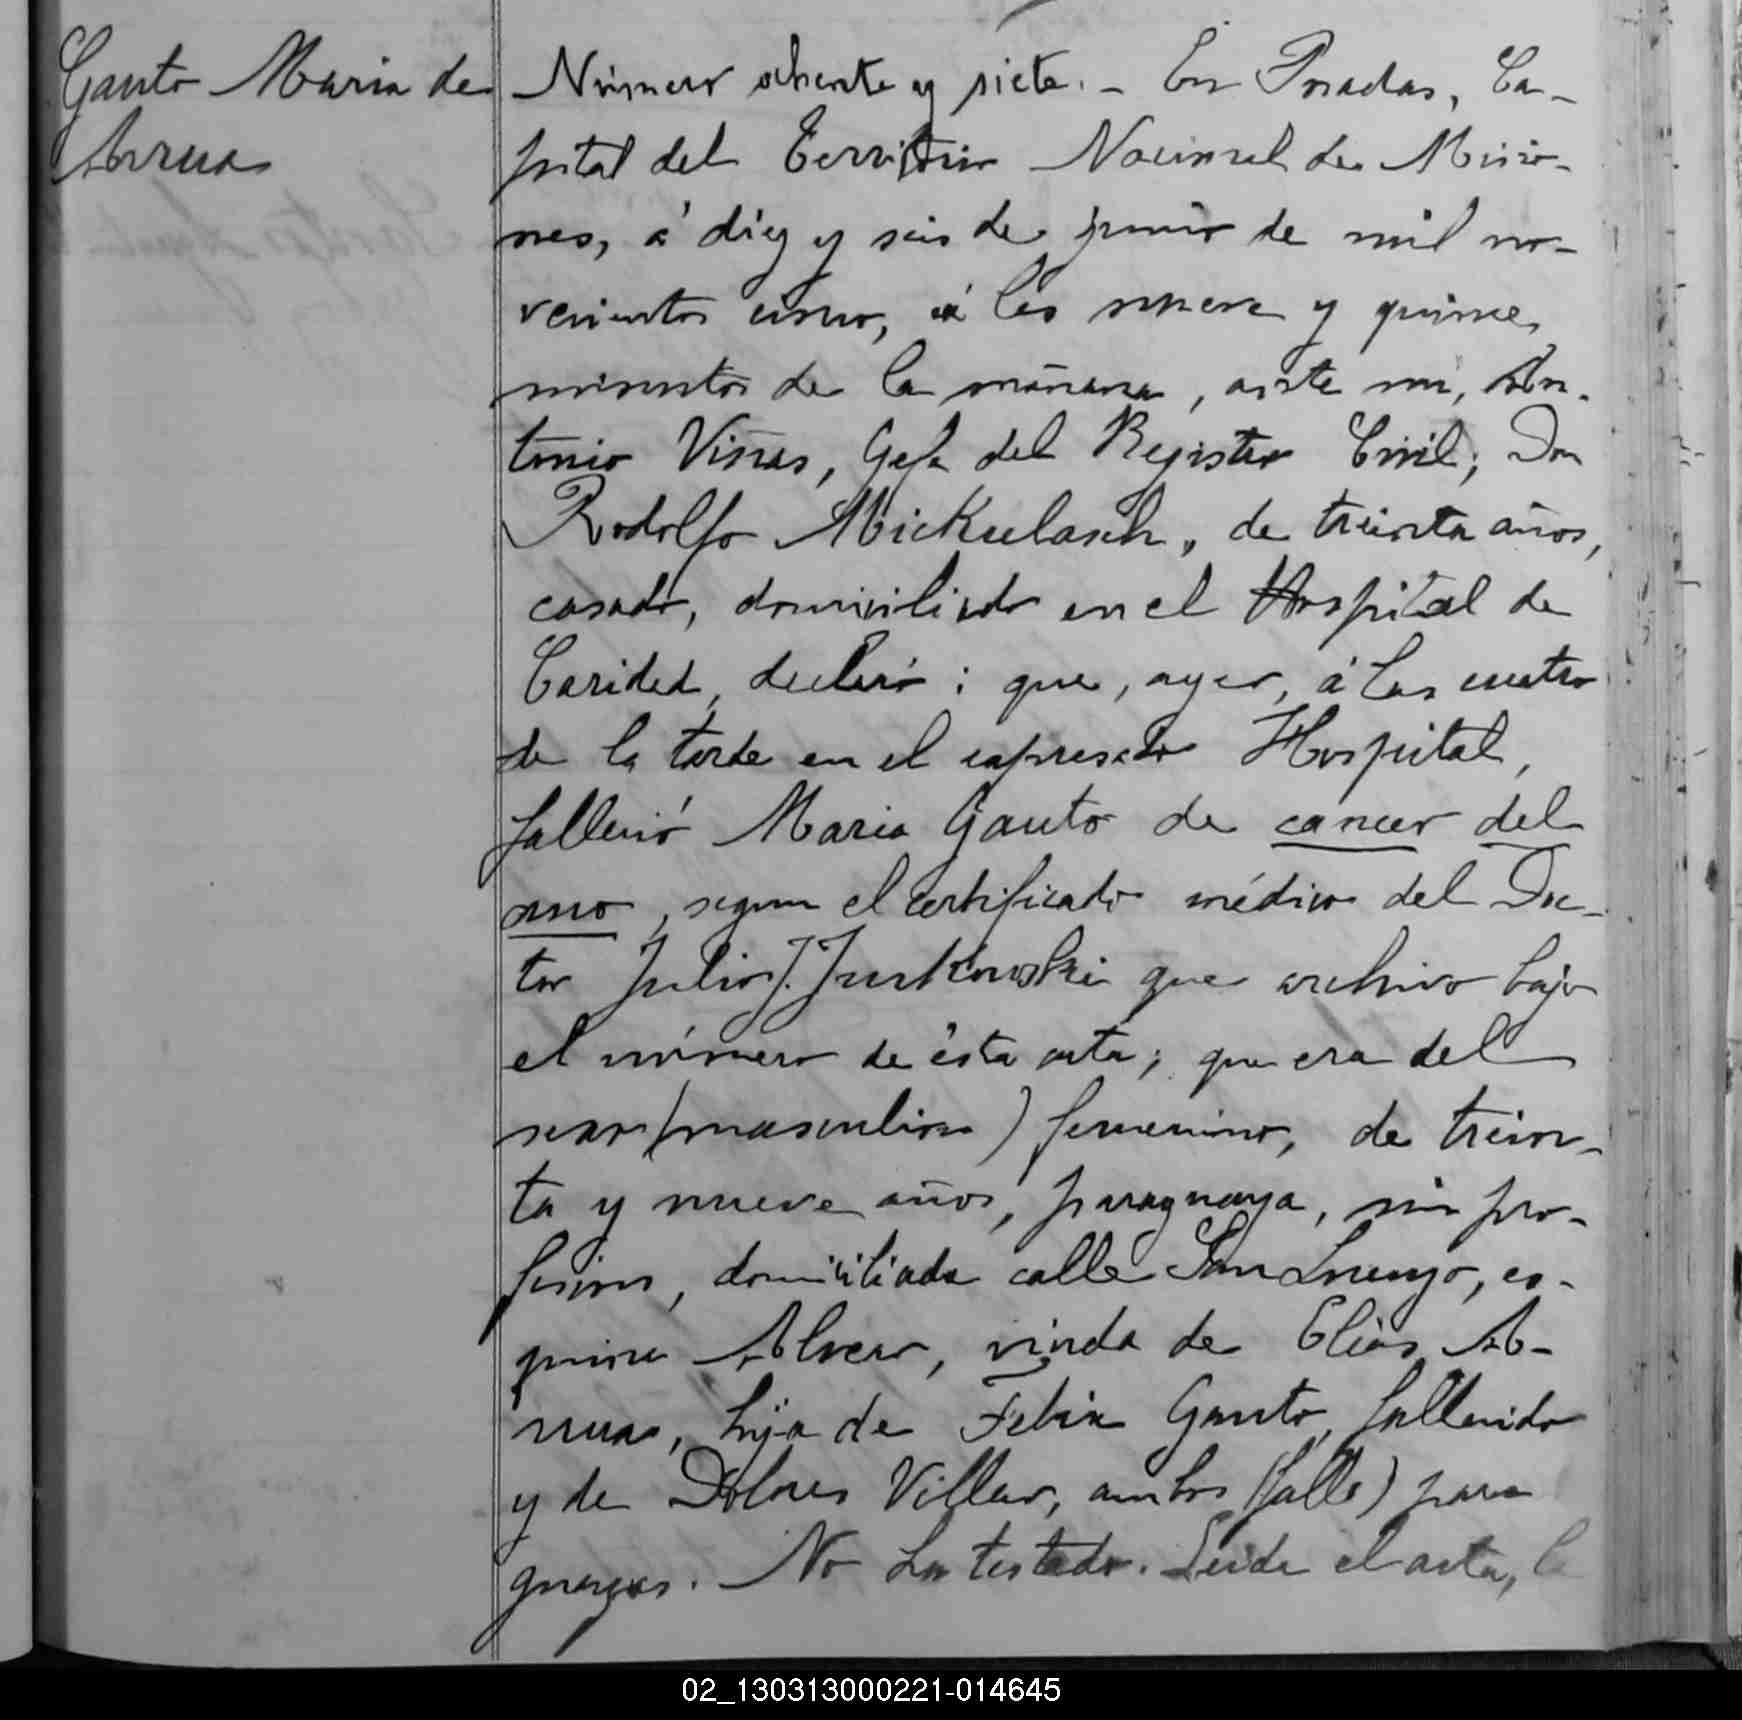 Gauto Maria de
Arrua
Número ochenta y siete. - En Posadas, Ca-
pital del Territorio Nacional de Misio-
nes, á diez y seis de junio de mil no-
vecientos uno, á las nueve y quince
minutos de la mañana, ante mi, An-
tonio Viñas, Gefe del Registro Civil, Don
Rodolfo Mickulasch, de treinta años,
casado, domiciliado en el Hospital de
Caridad, declaró: que, ayer, á las cuatro
de la tarde en el expresado Hospital,
falleció Maria Gauto de cancer del
ano, segun el certificado médico del Doc-
tor Julio J. Jurkowski que archivo bajo
el número de ésta acta; que era del
sexo (masculino) femenino, de trein-
ta y nueve años, paraguaya, sin pro-
fesion, domiciliada calle San Lorenzo, es-
quina Alvear, viuda de Elias Ar-
rua, hija de Felix Gauto, fallecido
y de Dolores Villar, ambos (falle) para
guayos. No ha testado. Leida el acta, la
02_130313000221-014645